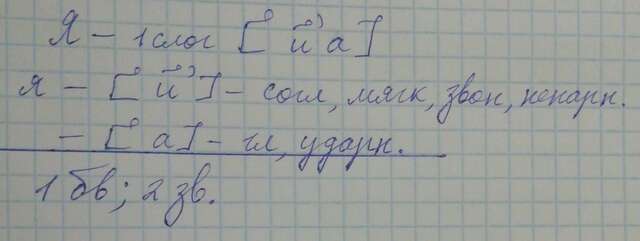 Я – 1 слог [й'а]
я – [й'] – согл, мягк, звон, непарн.
– [а] – гл, ударн.
1 бв; 2 зв.